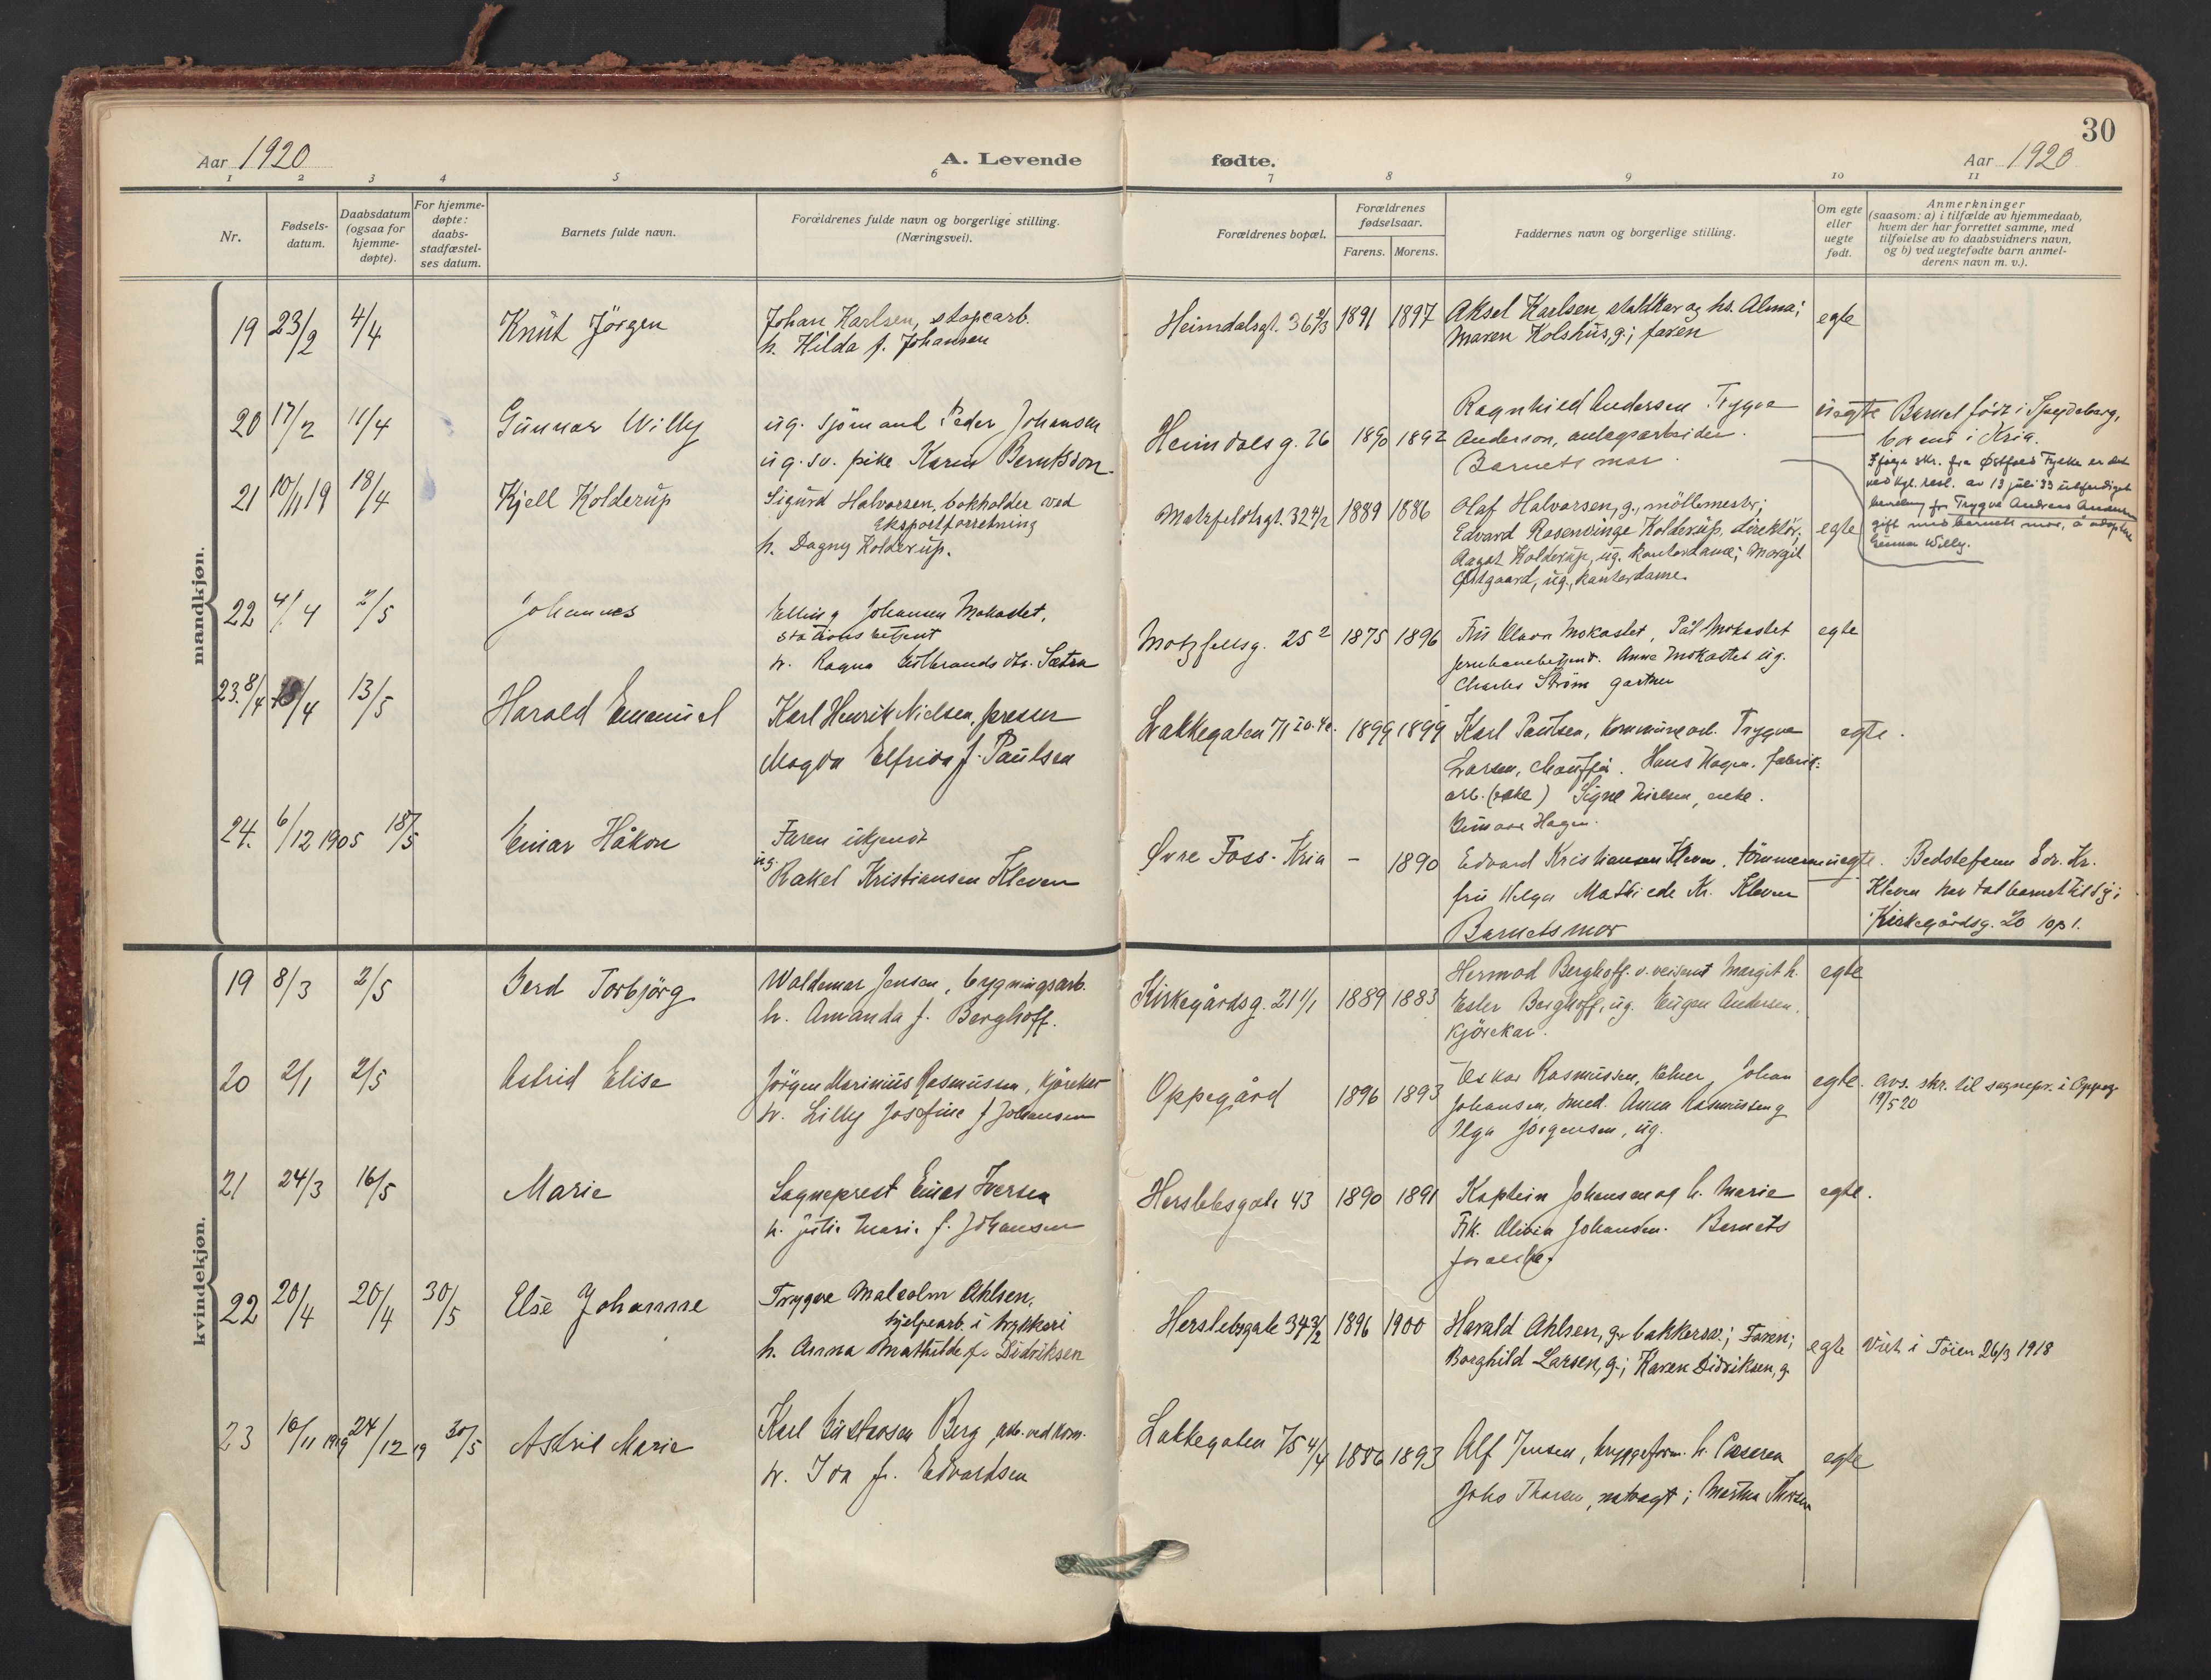 30
Aar 1920
A. Levende fødte.
Aar 1920
1 2 3 4 5 6 7 8 9 10 11
Nr.
Fødsels-
datum.
Daabsdatum
(ogsaa for
hjemme-
døpte).
For hjemme-
døpte:
daabs-
stadfæstel-
ses datum.
Barnets fulde navn.
Forældrenes fulde navn og borgerlige stilling.
(Næringsvei).
Forældrenes bopæl.
Forældrenes
fødselsaar.
Farens. Morens.
Faddernes navn og borgerlige stilling.
Om egte
eller
uegte
født.
Anmerkninger
(saasom: a) i tilfælde av hjemmedaab,
hvem der har forrettet samme, med
tilføielse av to daabsvidners navn,
og b) ved uegtefødte barn anmel-
derens navn m. v.).
mandkjøn.
19 23/2 4/4 Knut Jörgen
Johan Karlsen, støpearb.
h. Hilda f. Johansen
Heimdalsgt. 36 2/3 1891 1897
Aksel Karlsen, staldkar og hs. Alma;
Maren Kolshus, g.; faren
egte
20 17/2 11/4 Gunnar Willy
ug. sjömand Peder Johansen
ug. sv. pike Karen Berntsdon
Heimdalsg. 26 1890 1892
Ragnhild Andersen Trygve
Anderson, anlegsarbeider.
Barnets mor.
uegte
Barnet födt i Spydeberg,
boende i Kria.
Ifølge skr. fra Østfold Fylke er det
ved kgl. resl. av 13 juli 33 utferdiget
bevilling for Trygve Andreas Andersen
gift med barnets mor, å adoptere
Gunnar Willy.
21 10/11 19 18/4 Kjell Kolderup
Sigurd Halvorsen, bokholder ved
Eksportforretning
h. Dagny Kolderup.
Motzfeldtsgt. 32 4/2 1889 1886
Olaf Halvorsen, g., möllemestr;
Edvard Rosenvinge Kolderup, direktör;
Aagot Kolderup, ug. kontordame; Margit
Östgaard, ug., kontordame.
egte
22 4/4 2/5 Johannes
Elling Johansen Mokastet,
stationsbetjent
h. Ragna Gulbrandsdtr. Sætra
Motzfeltsg. 25 2 1875 1896
Fru Mokastet, Pål Mokastet
jernbanebetjent. Anna Mokastet ug.
Charles Ström gartner
egte
23. 8/4 13/5 Harald Emanuel
Karl Henrik Nielsen, presser
Magda Elfrida f. Paulsen
Lakkegaten 71 1899 1899
Karl Paulsen, kommunearb. Trygve
Larsen, chauffør. Hans Hagen, fabrik-
arb. Signe Nielsen, enke.
Hagen.
egte.
24. 6/12 1905 18/5 Einar Håkon
Faren ukjendt
ug. Rakel Kristiansen Kleven
Øvre Foss - Kria - 1890
Edvard Kristiansen Kleven, tömmerm
fru Helga Mathilde Kr. Kleven
Barnets mor
uegte.
Bedstefaren Edv. Kr.
Kleven har tat barnet til sig;
Kirkegårdsg. 20 opg 1.
kvindekjøn.
19 8/3 2/5 Gerd Torbjörg
Waldemar Jensen, bygningsarb.
h. Amanda f. Berghoff.
Kirkegårdsg. 21 1/1 1889 1883
Hermod Berghoff. v. Margit h.
Ester Berghoff, ug. Eugen Andersen,
kjörekar.
egte
20 2/1 2/5 Astrid Elise
Jörgen Marinius Rasmussen, kjörekar
h. Lilly Josefine f Johansen
Oppegård 1896 1893
Oskar Rasmussen, kelner, Johan
Johansen, smed. Anna Rasmussen g
Olga Jörgensen, ug.
egte.
avs. skr. til sognepr. i Oppeg.
19/5 20
21 24/3 16/5 Marie
Sogneprest Einar Iversen
h. Julie Marie f. Johansen
Herslebsgate 43 1890 1891
Kaptein Johansen og h. Marie
Frk. Olivia Johansen. Barnets
forældre
egte.
22 20/4 20/4 30/5 Else Johanne
Trygve Malcolm Ahlsen,
hjelpearb. i trykkeri
h. Anna Mathilde f. Didriksen
Herslebsgate 34 3/2 1896 1900
Harald Ahlsen, g. bakkersv.; Faren;
Borghild Larsen, g.; Karen Didriksen, g.
egte
Viet i Töien 26/3 1918
23 10/11 1919 24/12 19 30/5 Astrid Marie
Karl Gustavsen Berg, arb. ved kom.
h. Ida f. Edvardsen
Lakkegaten 75 4/4 1886 1893
Alf Jensen, bryggeform. h.
Johs Thorsen, natvagt; Martha Thorsen
egte